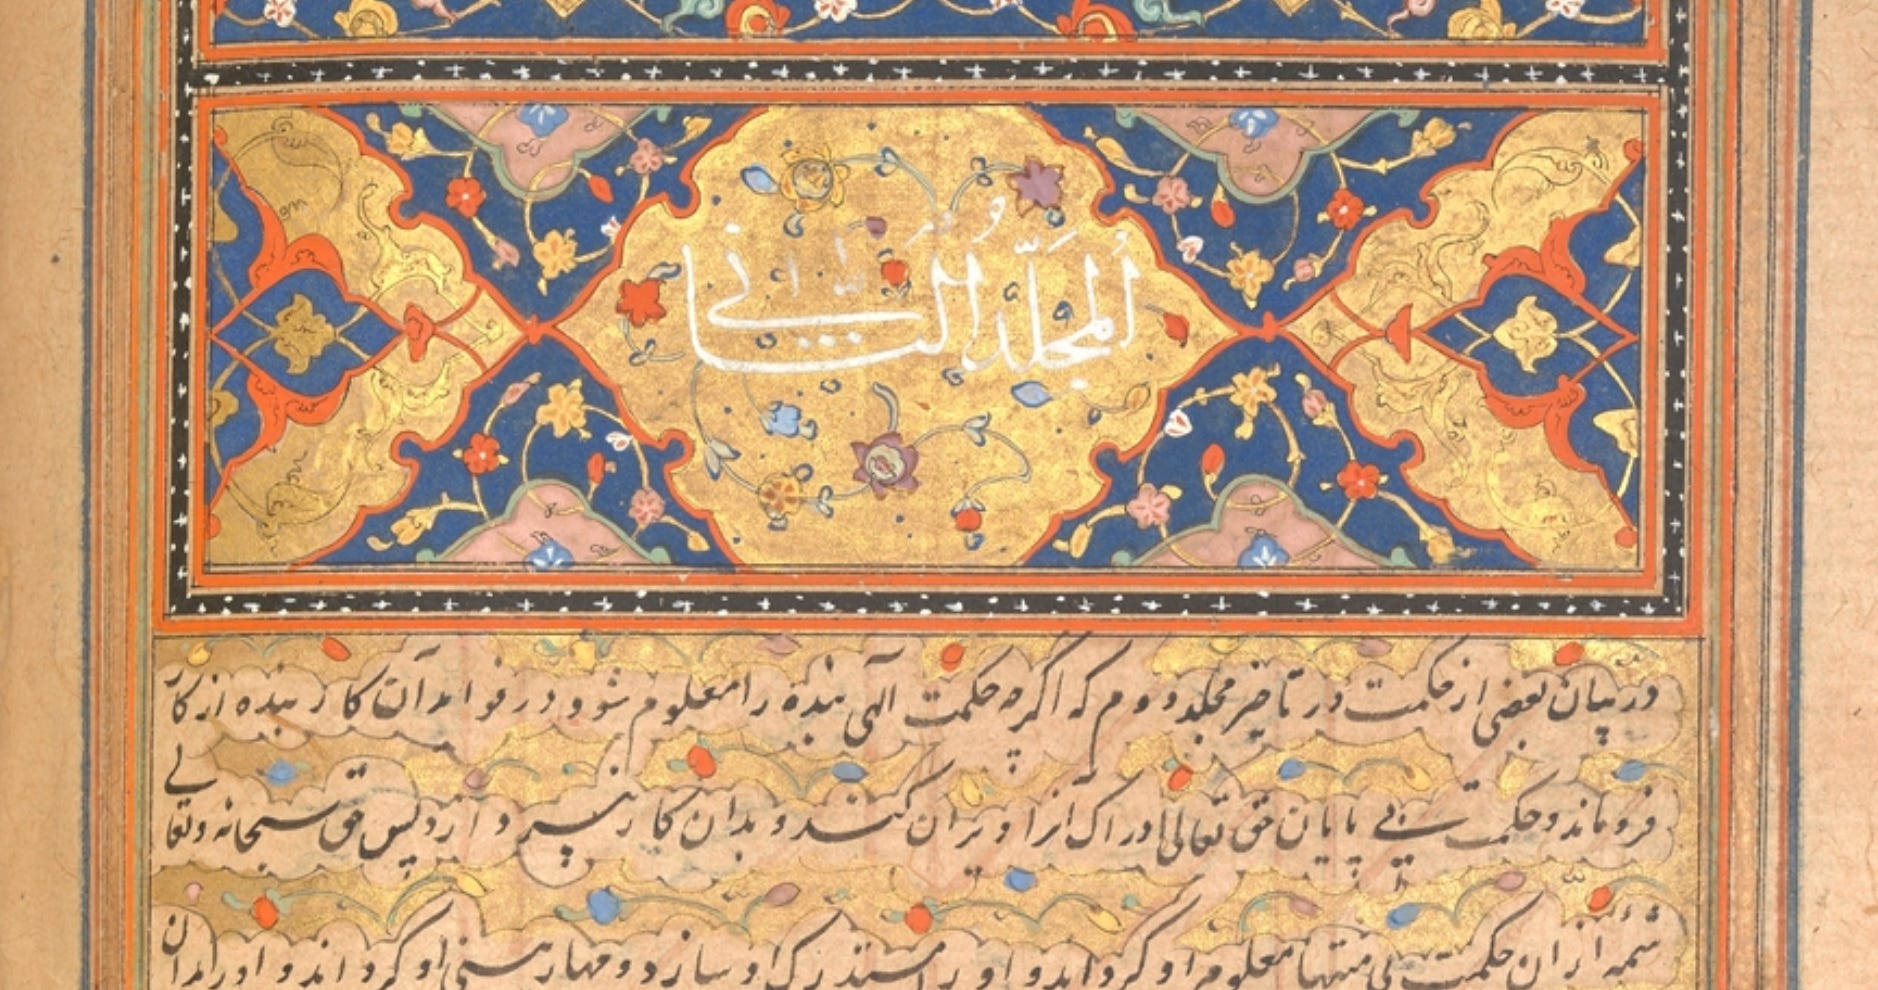 المجلد الثانی
در بیان بعضی از حکمت در تاخیر مجلد دوم که اگر چه حکمت الهی بنده را معلوم شود در فواید آن کار بنده از کار
فروماند و حکمت بی پایان حق تعالی ادراک آنرا ویران کند و بدان کار نپردازد پس حق سبحانه و تعالی
شمهٔ از ان حکمت بی منتها معلوم او گرداند و او را مستدرک او سازد و مهار بینی او گرداند و او را بدان